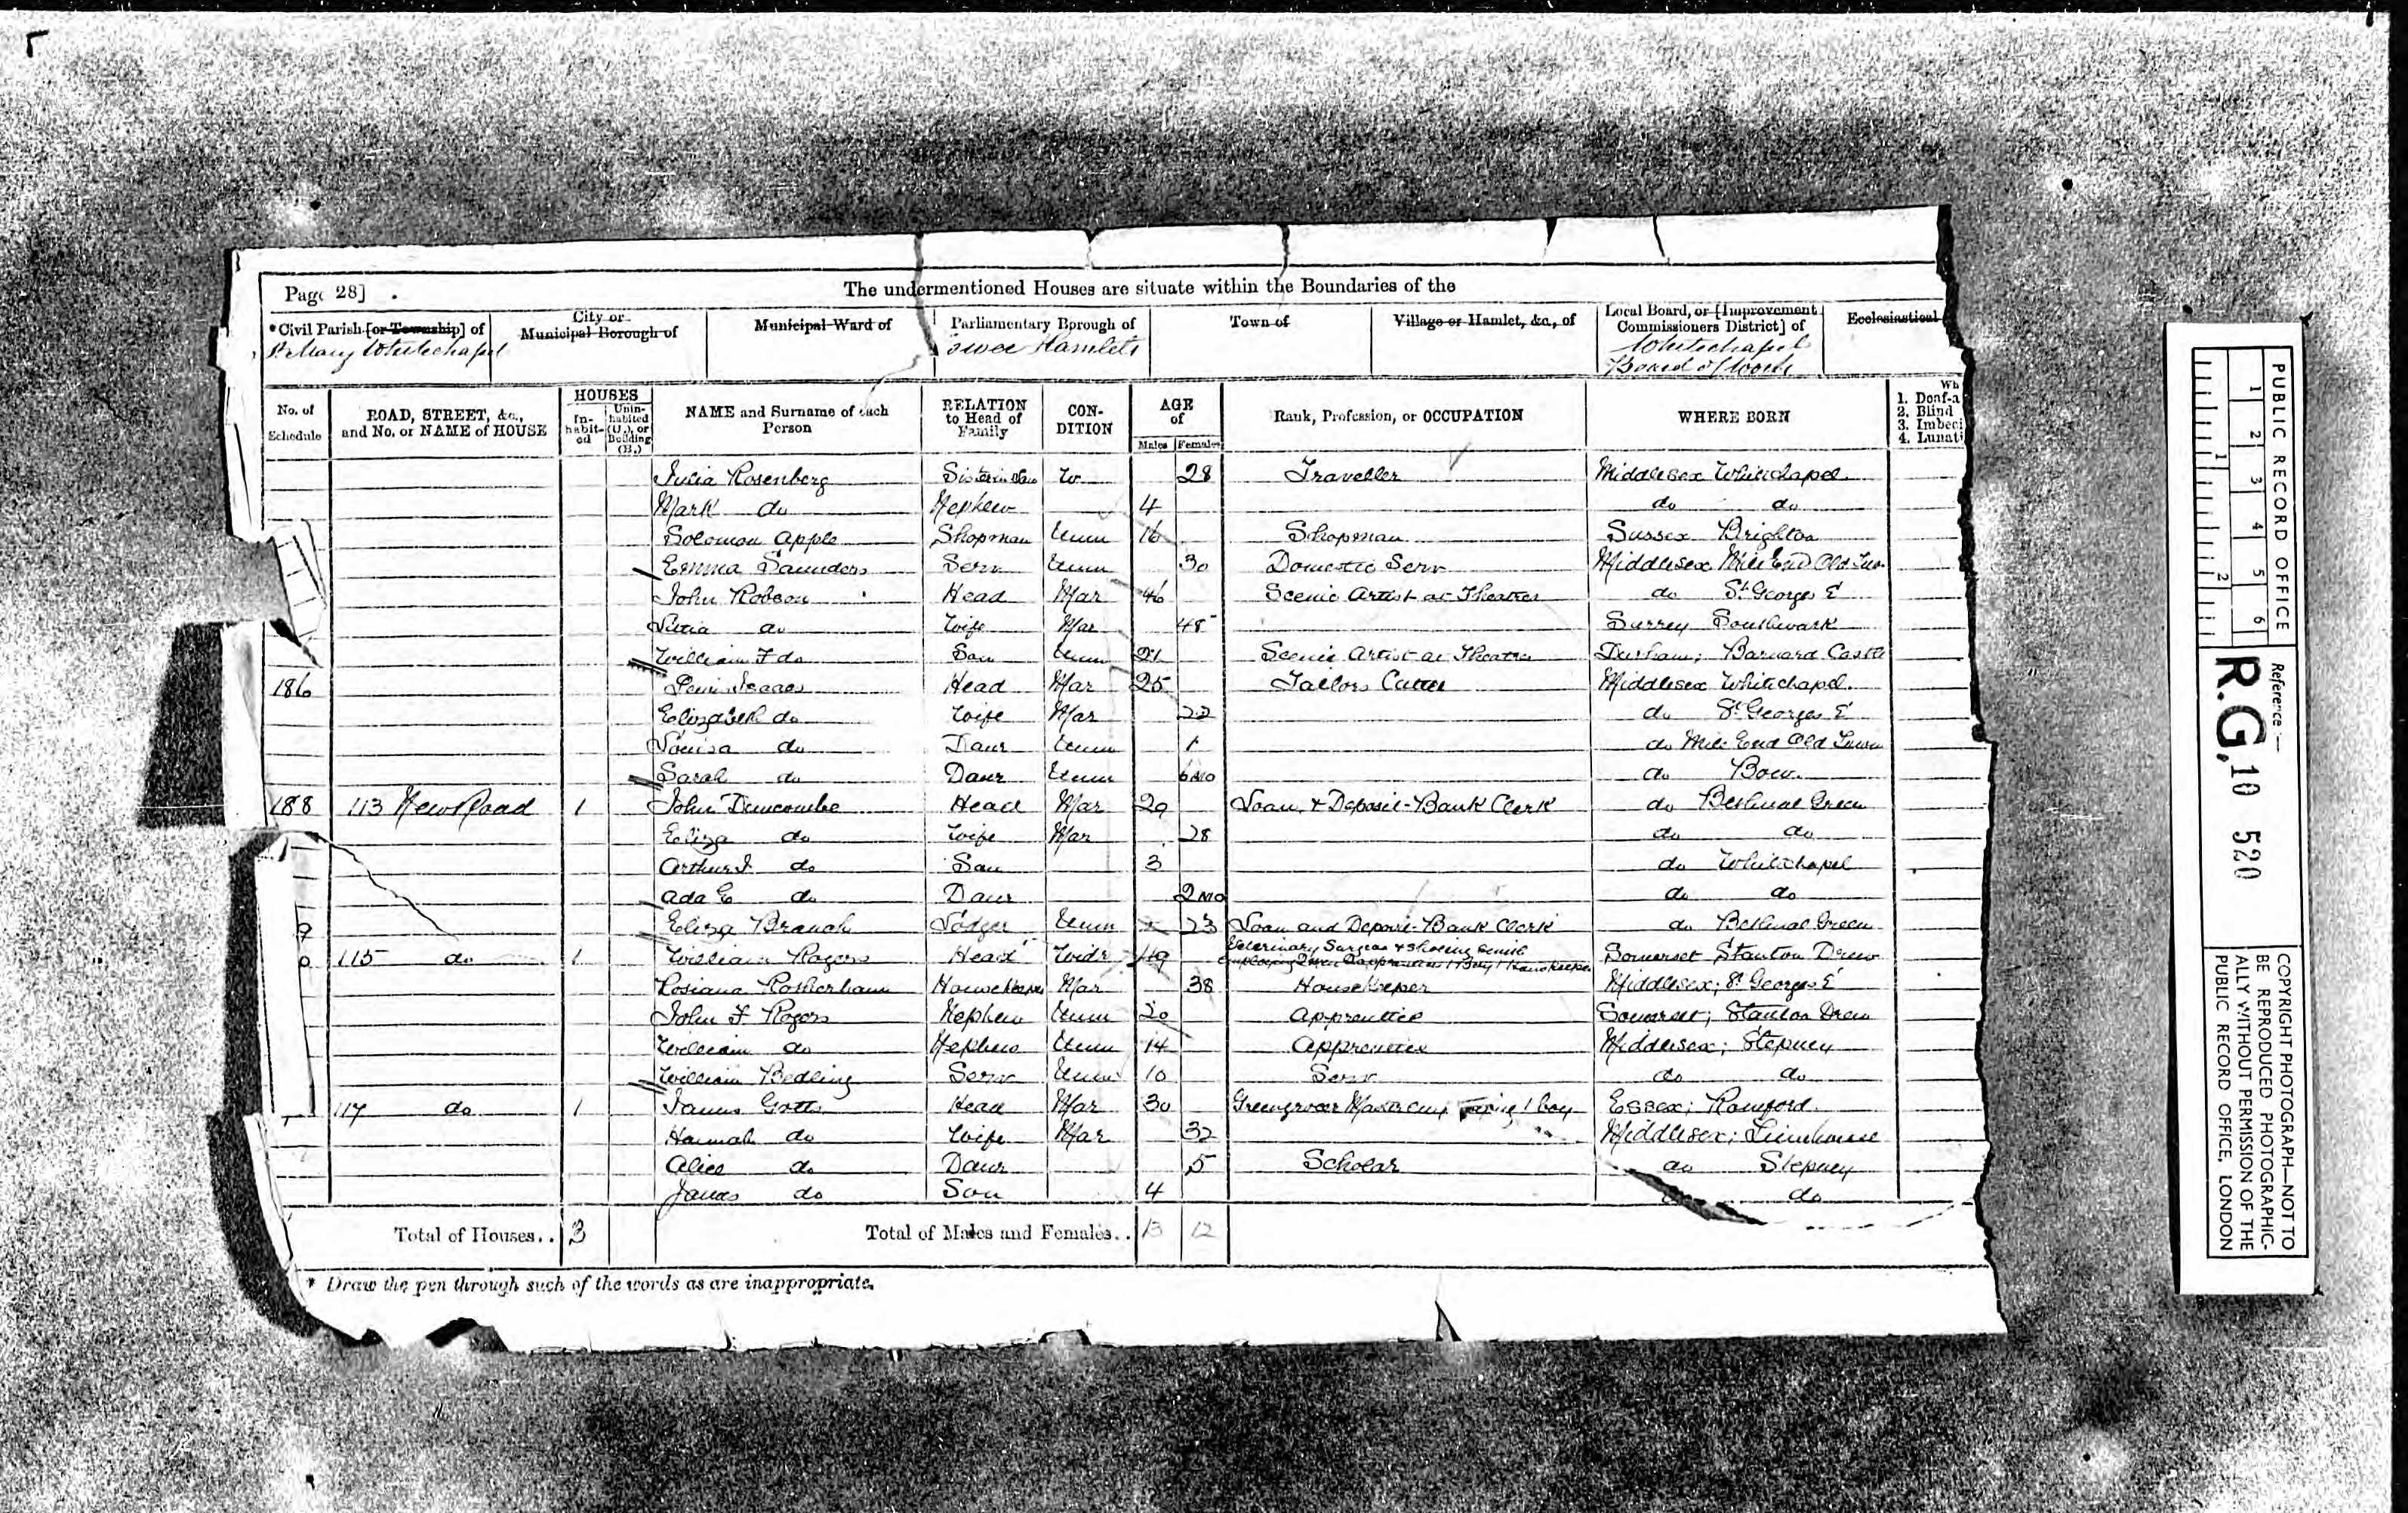 Page 28]
The undermentioned Houses are situate within the Boundaries of the
*Civil Parish [or Township] of
St Mary Whitechapel
City or Municipal Borough of
Municipal Ward of
Parliamentary Borough of
ower Hamlets
Town of
Village or Hamlet, &c., of
Local Board, or [Improvement Commissioners District] of
Whitechapel
Board of Works
Ecclesiastical
No. of Schedule
ROAD, STREET, &c., and No. or NAME of HOUSE
HOUSES
In-habit-ed
Unin-habited (U.), or Building (B.)
NAME and Surname of each Person
RELATION to Head of Family
CON-DITION
AGE of
Males Females
Rank, Profession, or OCCUPATION
WHERE BORN
Wh
1. Deaf-a
2. Blind
3. Imbeci
4. Lunati
Julia Rosenberg Sister in law W 28 Traveller Middlesex Whitechapel
Mark do Nephew 4 do do
Solomon Apple Shopman Unm 16 Shopman Sussex Brighton
Emma Saunders Serv Unm 30 Domestic Serv Middlesex Mile End Old
John Robson Head Mar 46 Scenic Artist at Theatre do St Georges E
do Wife Mar 48 Surrey Southwark
William F do Son Unm 21 Scenic Artist at Theatre Durham; Barnard Castle
186 Isaacs Head Mar 25 Tailors Cutter Middlesex Whitechapel
Elizabeth do Wife Mar 22 do St Georges E
Louisa do Daur Unm 1 do Mile End Old Town
Sarah do Daur Unm 6 mo do Bow
188 113 New Road 1 John Duncombe Head Mar 29 Loan & Deposit Bank Clerk do Bethnal Green
Eliza do Wife Mar 28 do do
Arthur J do Son 3 do Whitechapel
Ada E do Daur 2 mo do do
9 Eliza Branch Lodger Unm 23 Loan and Deposit Bank Clerk do Bethnal Green
0 115 do 1 William Rogers Head Widr 49 Veterinary Surgeon & Shoeing Smith employing 2 men 2 apprentices 1 Boy 1 Housekeeper Somerset Stanton Drew
Rosiana Rotherham Housekeeper Mar 38 Housekeeper Middlesex; St Georges E
John F Rogers Nephew Unm 20 Apprentice Somerset; Stanton Drew
William do Nephew Unm 14 Apprentice Middlesex; Stepney
William Bedling Serv Unm 10 Serv do do
117 do 1 James Gotts Head Mar 30 Greengrocer Master 1 boy Essex; Romford
Hannah do Wife Mar 32 Middlesex; Limehouse
Alice do Daur 5 Scholar do Stepney
James do Son 4 do
Total of Houses.. 3
Total of Males and Females.. 13 12
* Draw the pen through such of the words as are inappropriate.
PUBLIC RECORD OFFICE
1 2 3 4 5 6
1 2
Reference:—
R.G. 10 520
COPYRIGHT PHOTOGRAPH—NOT TO
BE REPRODUCED PHOTOGRAPHIC-
ALLY WITHOUT PERMISSION OF THE
PUBLIC RECORD OFFICE, LONDON